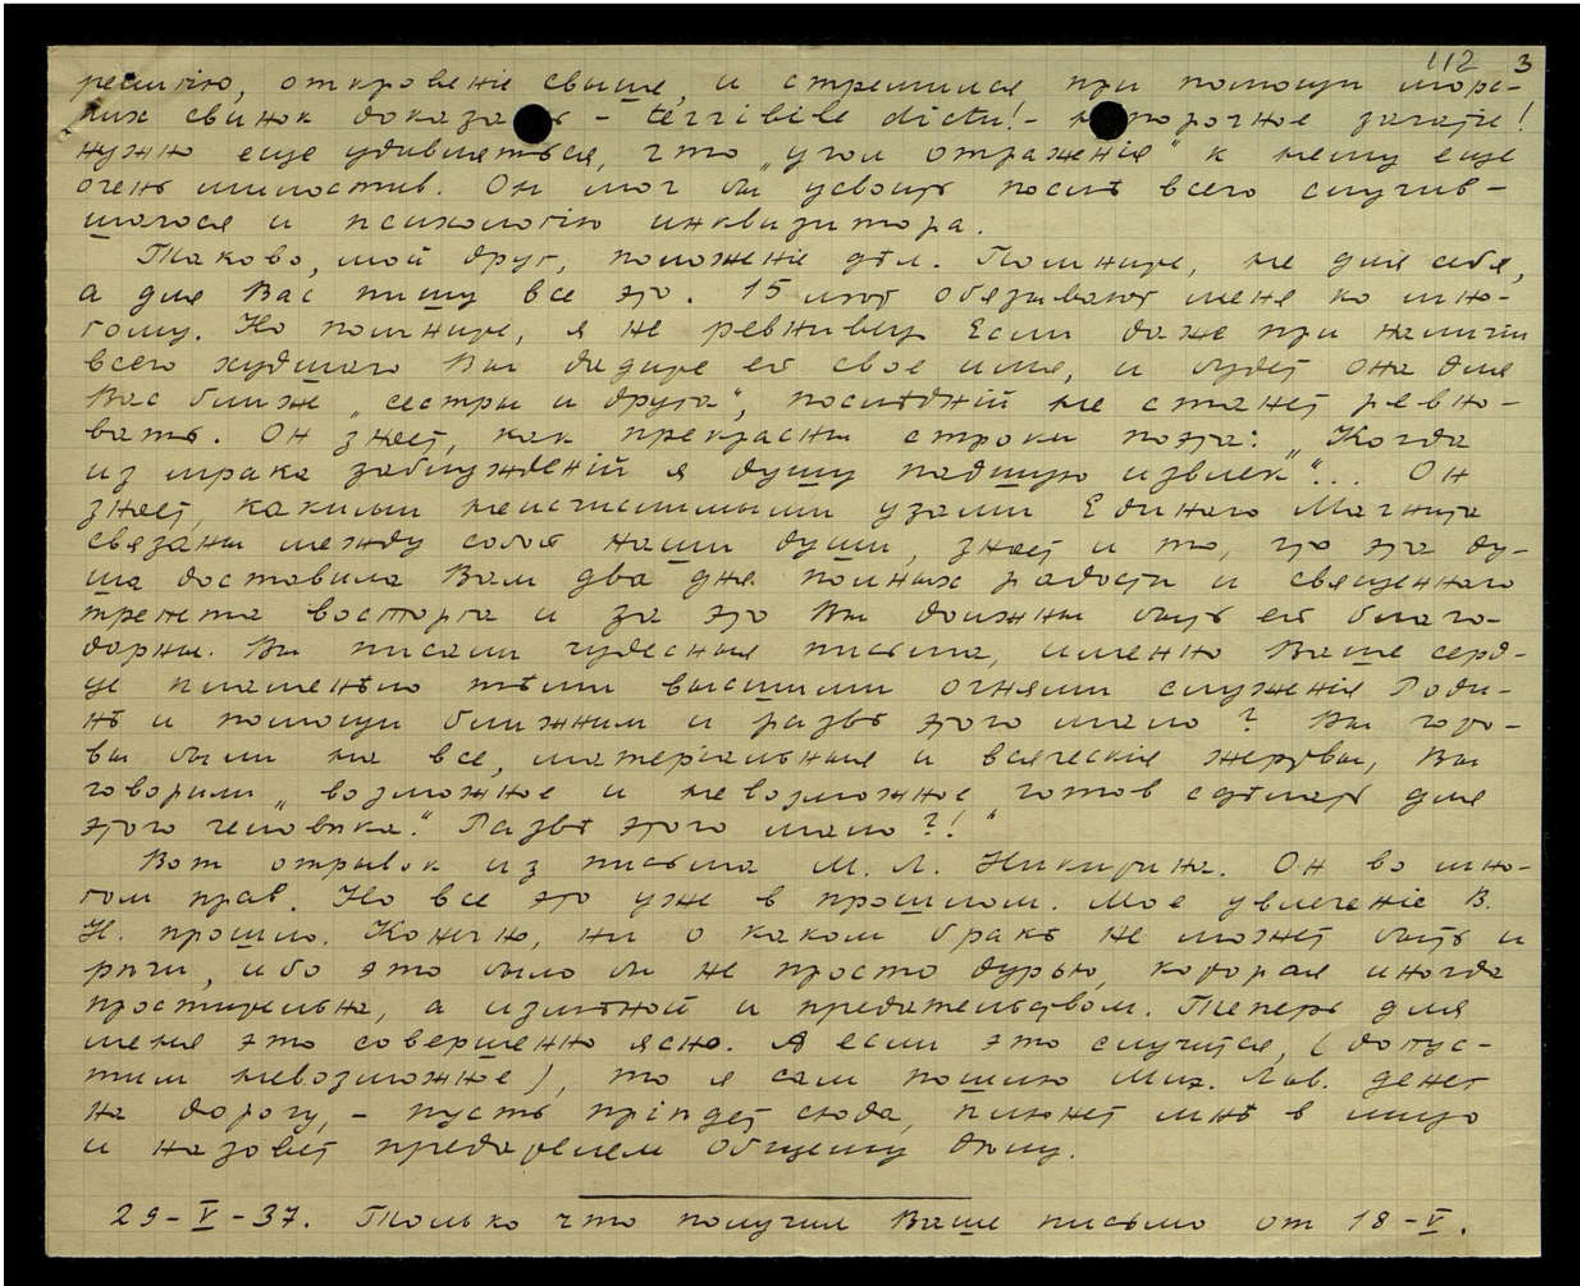 112 3
религію, откровеніе свыше, и стремился при помощи морс-
ких свинок доказать – terribile dictu! – непорочное зачатіе!
нужно еще удивляться, что „угол отраженія" к нему еще
очень милостив. Он мог бы усвоить послѣ всего случив-
шагося и психологію инквизитора.
Таково, мой друг, положеніе дѣл. Помните, не для себя,
а для Вас пишу все это. 15 лѣт обязывают меня ко мно-
гому. Но помните, я не ревнивец. Если даже при наличіи
всего худшаго Вы дадите ей свое имя, и будет она для
Вас ближе „сестры и друга", послѣдній не станет ревно-
вать. Он знает, как прекрасны строки поэта: „Когда
из мрака заблужденій я душу падшую извлек"... Он
знает, какими неисчислимыми узами Единаго Магнита
связаны между собой наши души, знает и то, что эта ду-
ша доставила Вам два дня полных радости и священнаго
трепета восторга и за это Вы должны быть ей благо-
дарны. Вы писали чудесныя письма, именно Ваше серд-
це пламенѣло тѣми высшими огнями служенія Роди-
нѣ и помощи ближним и развѣ этого мало? Вы гото-
вы были на все, матеріальныя и всяческія жертвы, Вы
говорили „возможное и невозможное готов сдѣлать для
этого человѣка." Развѣ этого мало?!"
Вот отрывок из письма М. Л. Никитина. Он во мно-
гом прав. Но все это уже в прошлом. Мое увлеченіе В.
Н. прошло. Конечно, ни о каком бракѣ не может быть и
рѣчи, ибо это было бы не просто дурью, которая иногда
простительна, а измѣной и предательством. Теперь для
меня это совершенно ясно. А если это случится, (допус-
тим невозможное), то я сам пошлю Мих. Лав. денег
на дорогу, – пусть пріѣдет сюда, плюнет мнѣ в лицо
и назовет предателем общему дѣлу.
29-V-37. Только что получил Ваше письмо от 18-V.